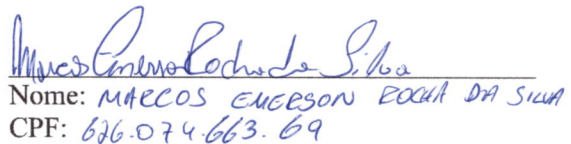 Marcos Emerson Rocha da Silva
Nome: MARCOS EMERSON ROCHA DA SILVA
CPF: 626.074.663.69